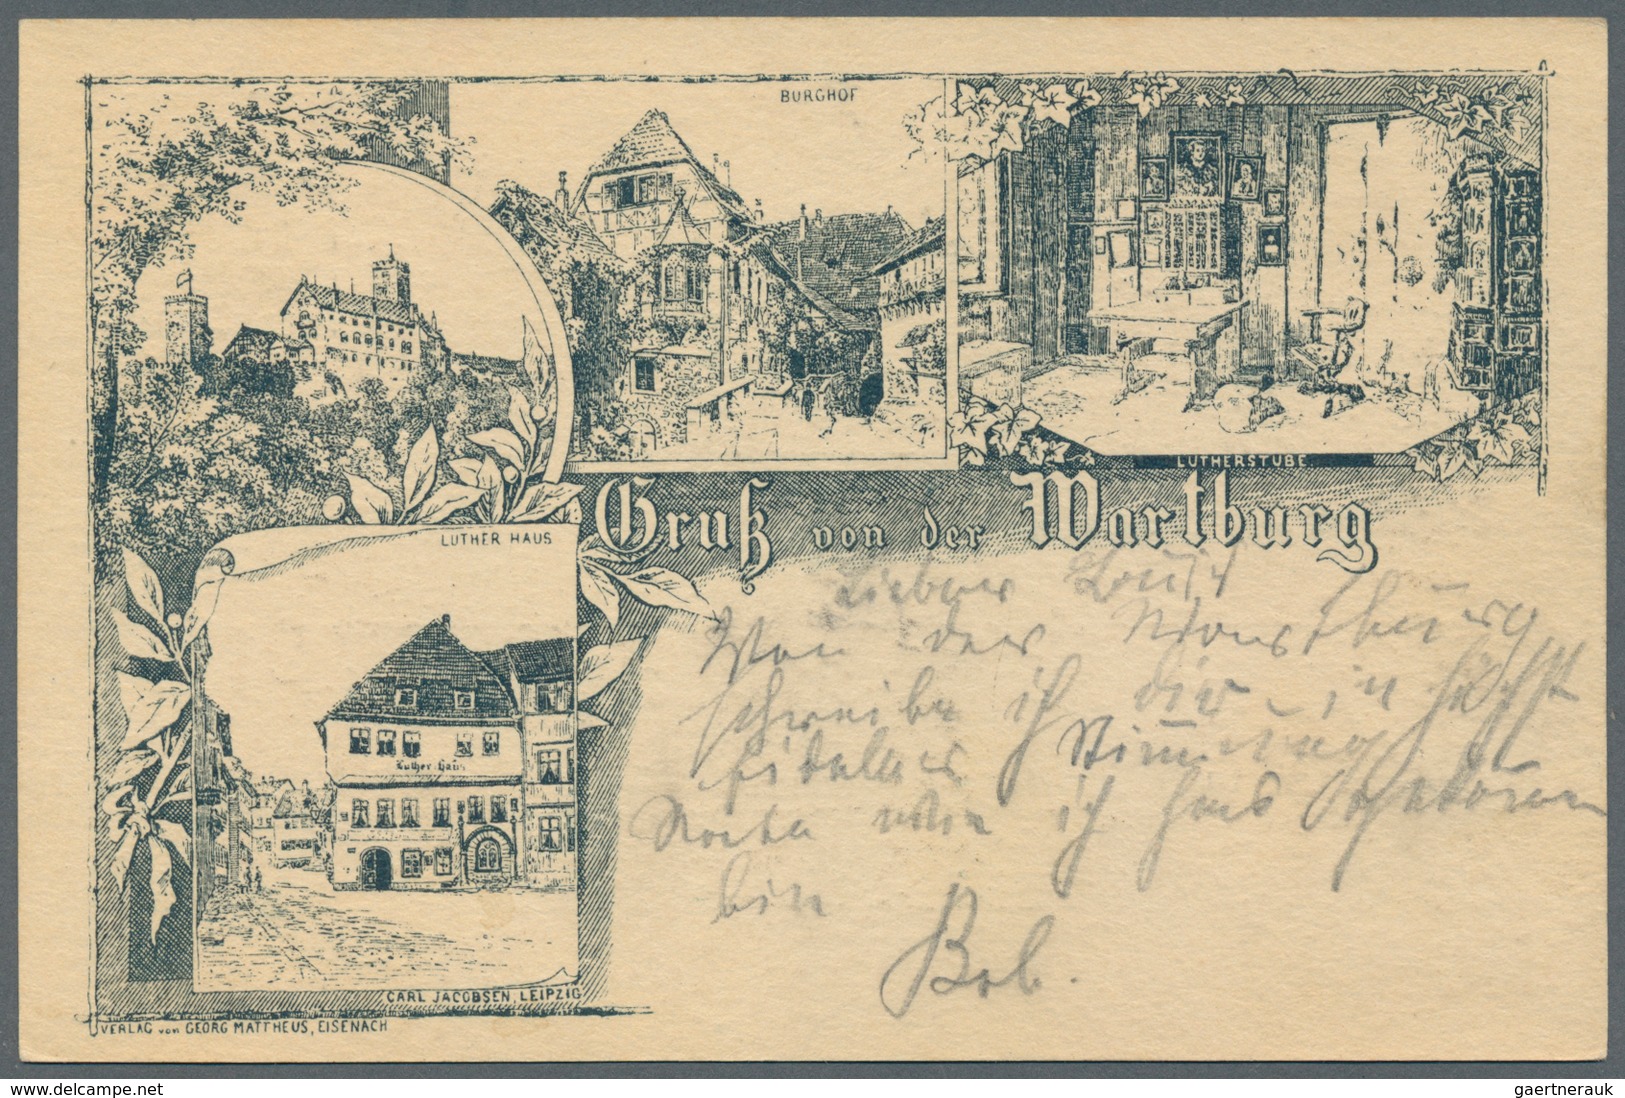 BURGHOF
LUTHERSTUBE
Gruß von der Wartburg
LUTHER HAUS
Luther Haus
Lieber
Von der Wartburg
schreibe ich dir in höchst
fideler Stimmung
ich
bin
Bob.
CARL JACOBSEN, LEIPZIG
VERLAG von GEORG MATTHEUS, EISENACH
www.delcampe.net
gaertnerauk